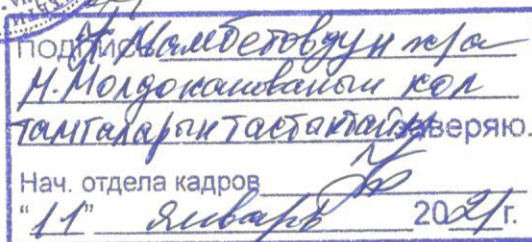 подпись Мамбетовдун жа
М. Молдокановanын кол
тамгаларын тастыктайм заверяю.
Нач. отдела кадров
"11" январь 2021г.